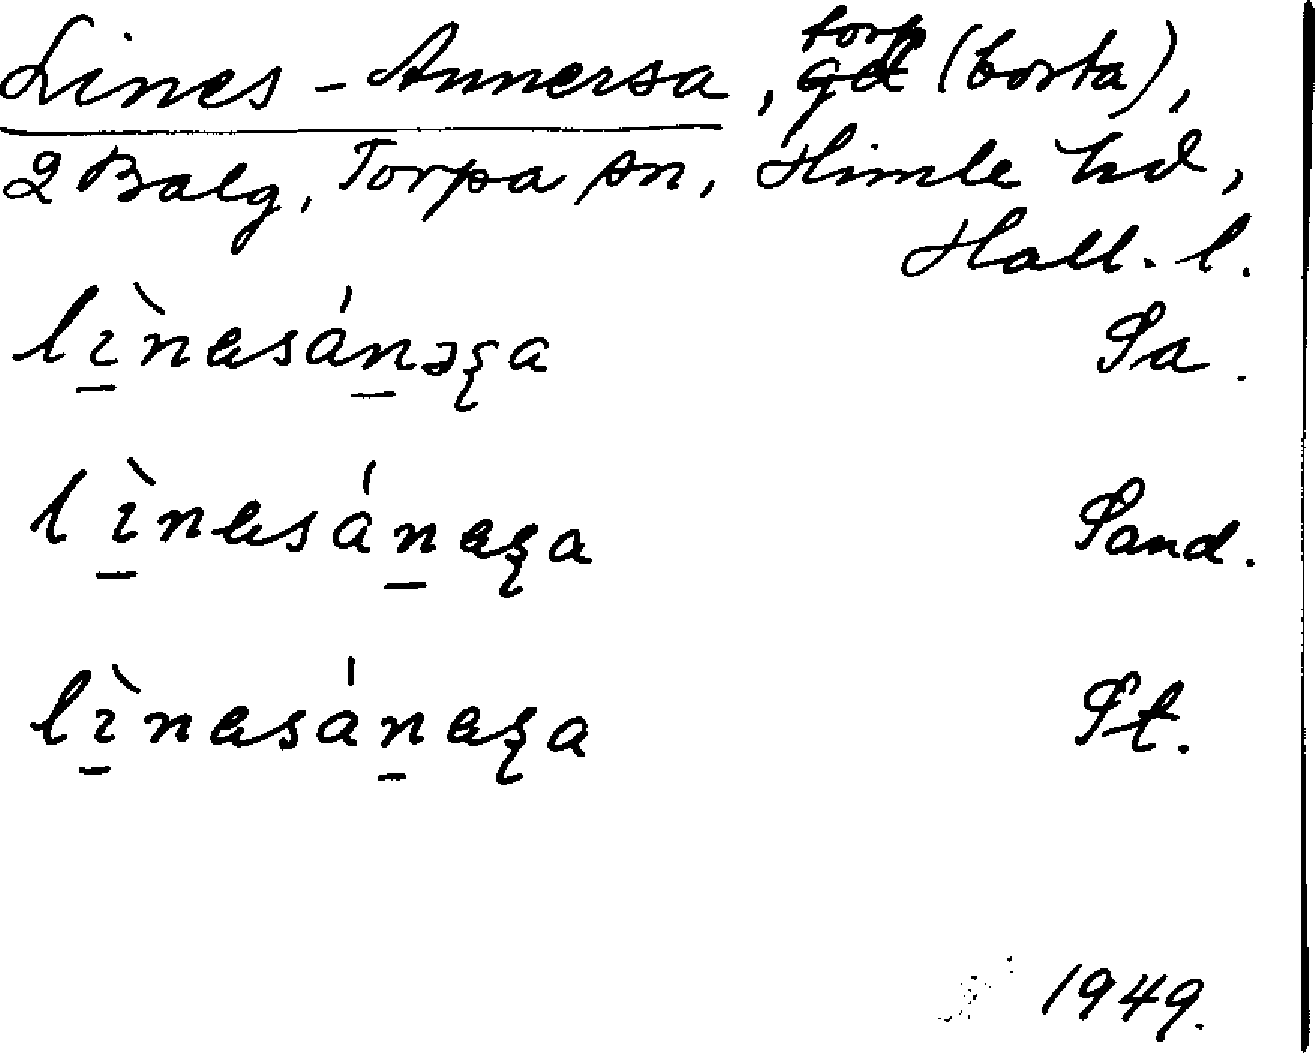 Lines-Annersa, torp (borta),
2 Balg, Torpa sn, Himle hd,
Hall. l.
lìnasánəʂa Sa.
lìnasánaʂa Sand.
lìnasánaʂa St.
1949.